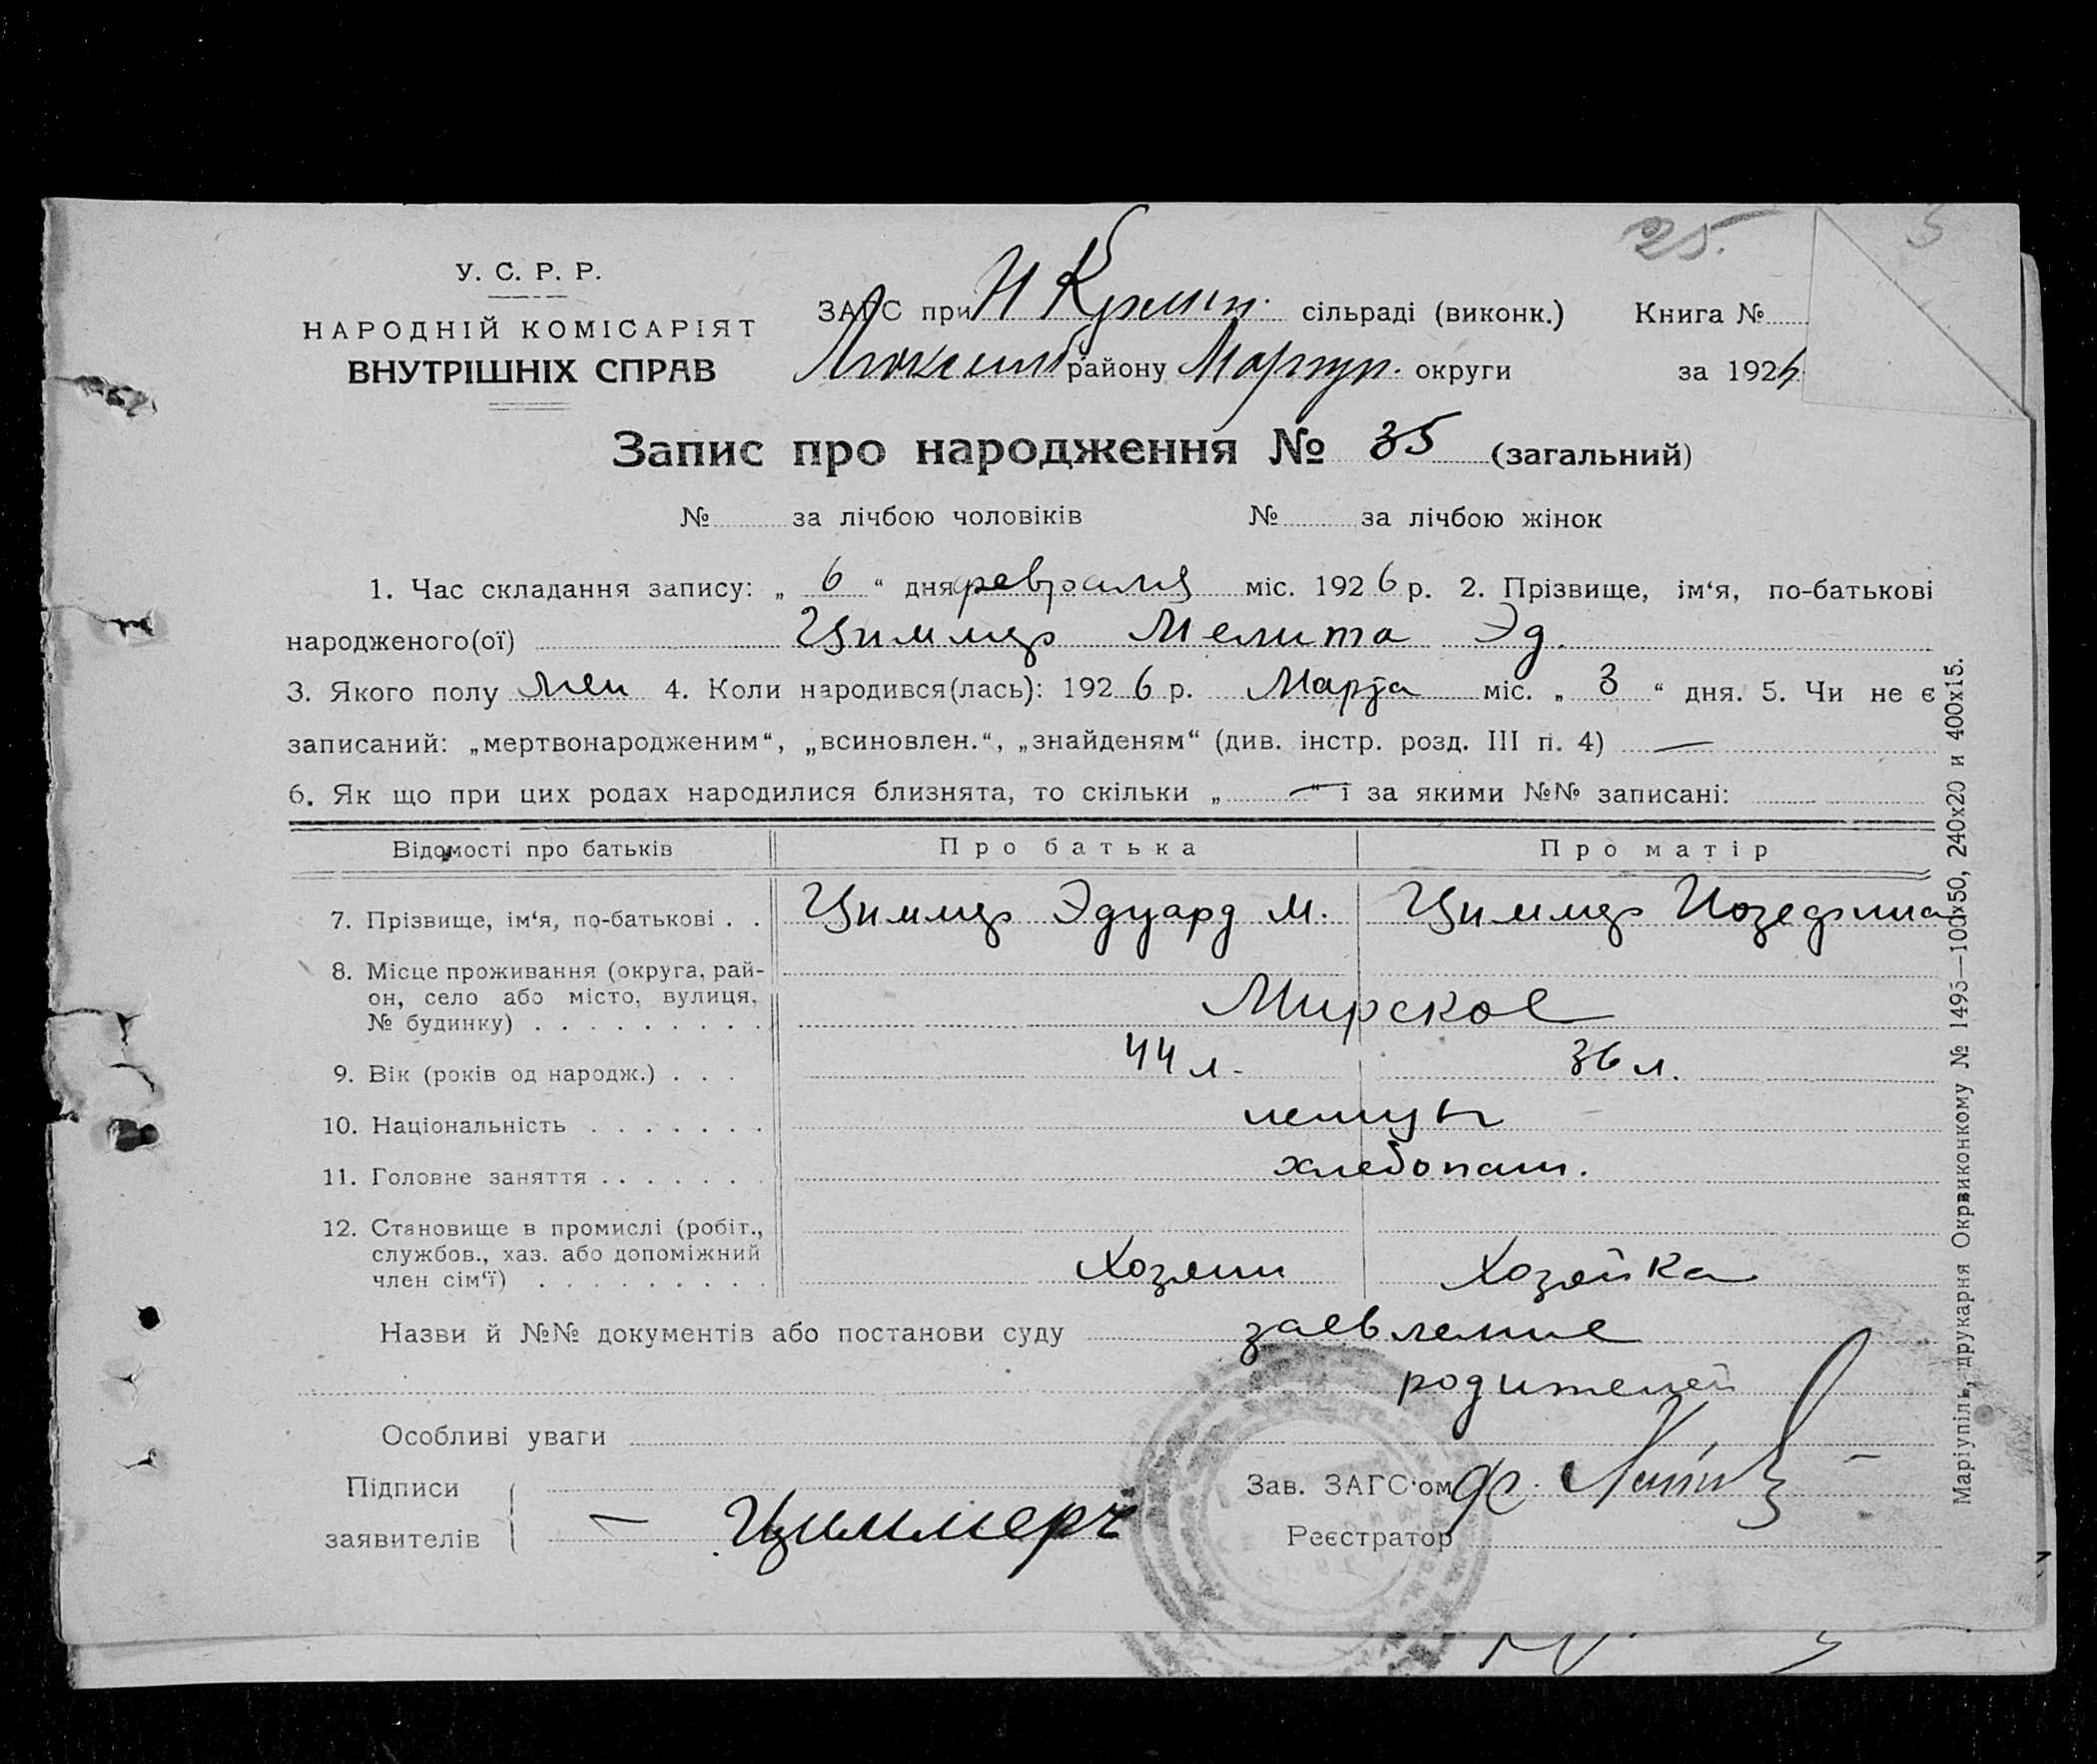 25.
У. С. Р. Р.
НАРОДНІЙ КОМІСАРІЯТ
ВНУТРІШНІХ СПРАВ
ЗАГС при сільраді (виконк.)
району Мариуп. округи
Книга №
за 192
Запис про народження № 35 (загальний)
№ за лічбою чоловіків № за лічбою жінок
1. Час складання запису: „ 6 “ дня февраля міс. 192 6 р. 2. Прізвище, ім‘я, по-батькові
народженого(ої) Циммер Мелита Эд.
3. Якого полу жен 4. Коли народився(лась): 192 6 р. Марта міс. „ 3 “ дня. 5. Чи не є
записаний: „мертвонародженим“, „всиновлен.“, „знайденям“ (див. інстр. розд. III п. 4) —
6. Як що при цих родах народилися близнята, то скільки „ — “ і за якими №№ записані:
Відомості про батьків Про батька Про матір
7. Прізвище, ім‘я, по-батькові . . Циммер Эдуард М. Циммер Иозефина
8. Місце проживання (округа, рай-
он, село або місто, вулиця,
№ будинку) . . . . . . . . . Мирское
9. Вік (років од народж.) . . . 44 л. 36 л.
10. Національність . . . . . . . немцы
11. Головне заняття . . . . . . . хлебопаш.
12. Становище в промислі (робіт.,
службов., хаз. або допоміжний
член сім‘ї) . . . . . . . . . Хозяин Хозяйка
Назви й №№ документів або постанови суду заевление
родителей
Особливі уваги
Підписи
заявителів — Циммеръ
Зав. ЗАГС‘ом
Реєстратор
Маріупіль, друкарня Окрвиконкому № 1493—100х50, 240х20 и 400х15.